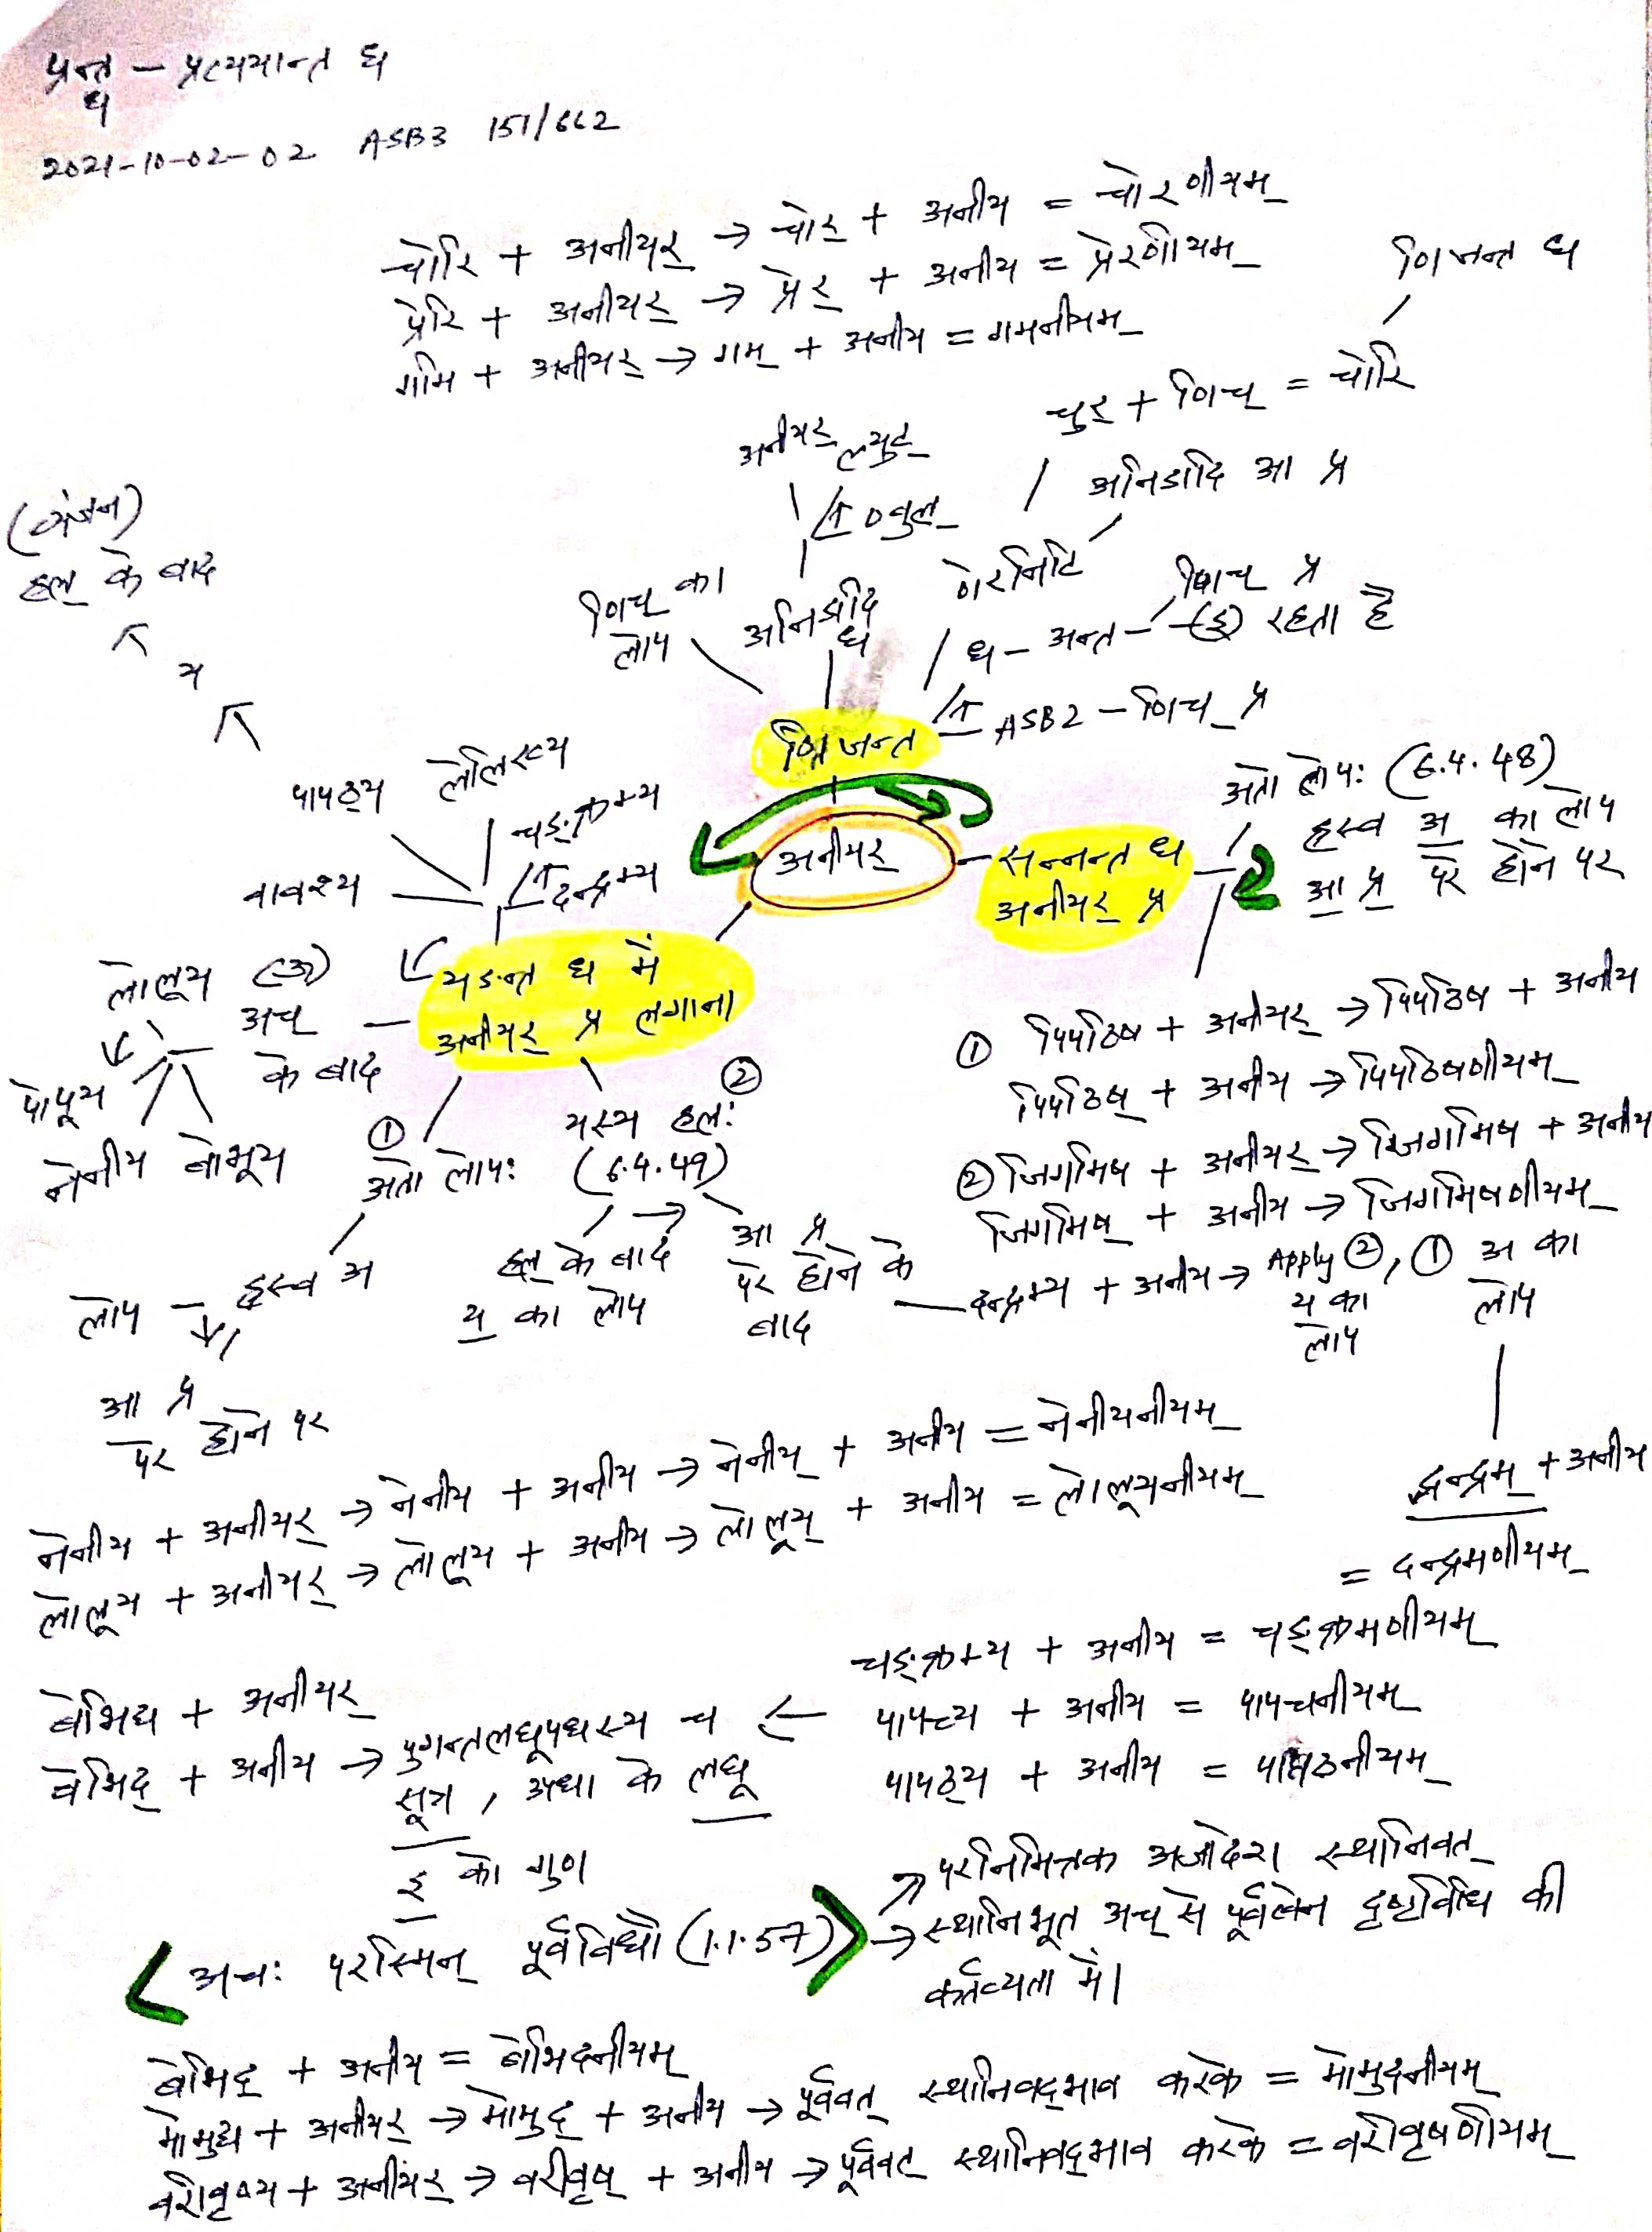 प्रन्त ध - प्रत्ययान्त ध
2021-10-02-02 ASB3 151/662
चोरि + अनीयर् → चोर् + अनीय = चोरणीयम्
प्रेरि + अनीयर् → प्रेर् + अनीय = प्रेरणीयम्
गमि + अनीयर् → गम् + अनीय = गमनीयम्
णिजन्त ध
चुर् + णिच् = चोरि
अनीयर् ल्युट्
ण्वुल्
अनिडादि आ प्र
णेरनिटि
(व्यंजन)
हल् के बाद
य
णिच् का
लोप
अनिडादि
ध
णिच् प्र
ध - अन्त - (इ) रहता है
ASB2 - णिच् प्र
णिजन्त
अनीयर्
सन्नन्त ध
अनीयर् प्र
अतो लोपः (6.4.48)
ह्रस्व अ का लोप
आ प्र परे होने पर
पापठ्य लेलिख्य
चङ्क्रम्य
वावश्य दन्द्रम्य
यङन्त ध में
अनीयर् प्र लगाना
लोलूय (ऊ)
अच्
के बाद
पोपूय
नेनीय बोभूय
① अतो लोपः
② यस्य हलः
(6.4.49)
लोप - ह्रस्व अ
आ प्र
परे होने पर
हल् के बाद
य् का लोप
आ प्र
परे होने के
बाद
① पिपठिष + अनीयर् → पिपठिष + अनीय
पिपठिष् + अनीय → पिपठिषणीयम्
② जिगमिष + अनीयर् → जिगमिष + अनीय
जिगमिष् + अनीय → जिगमिषणीयम्
दन्द्रम्य + अनीय → Apply ②, ① अ का
य् का लोप
लोप
दन्द्रम् + अनीय
= दन्द्रमणीयम्
नेनीय + अनीयर् → नेनीय + अनीय → नेनीय् + अनीय = नेनीयनीयम्
लोलूय + अनीयर् → लोलूय + अनीय → लोलूय् + अनीय = लोलूयनीयम्
चङ्क्रम्य + अनीय = चङ्क्रमणीयम्
पापच्य + अनीय = पापचनीयम्
पापठ्य + अनीय = पापठनीयम्
बेभिद्य + अनीयर्
बेभिद् + अनीय → पुगन्तलघूपधस्य च
सूत्र, उपधा के लघू
इ को गुण
अचः परस्मिन् पूर्वविधौ (1.1.57)
परनिमित्तक अजादेश स्थानिवत्
स्थानिभूत अच् से पूर्वत्वेन दृष्टविधि की
कर्तव्यता में।
बेभिद् + अनीय = बेभिदनीयम्
मोमुद्य + अनीयर् → मोमुद् + अनीय → पूर्ववत् स्थानिवद्भाव करके = मोमुदनीयम्
वरीवृष्य + अनीयर् → वरीवृष् + अनीय → पूर्ववत् स्थानिवद्भाव करके = वरीवृषणीयम्